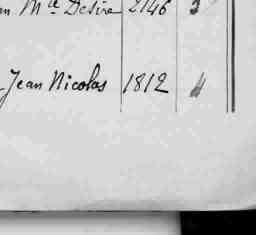 n M le Désiré 2146 3
Jean Nicolas 1812 4